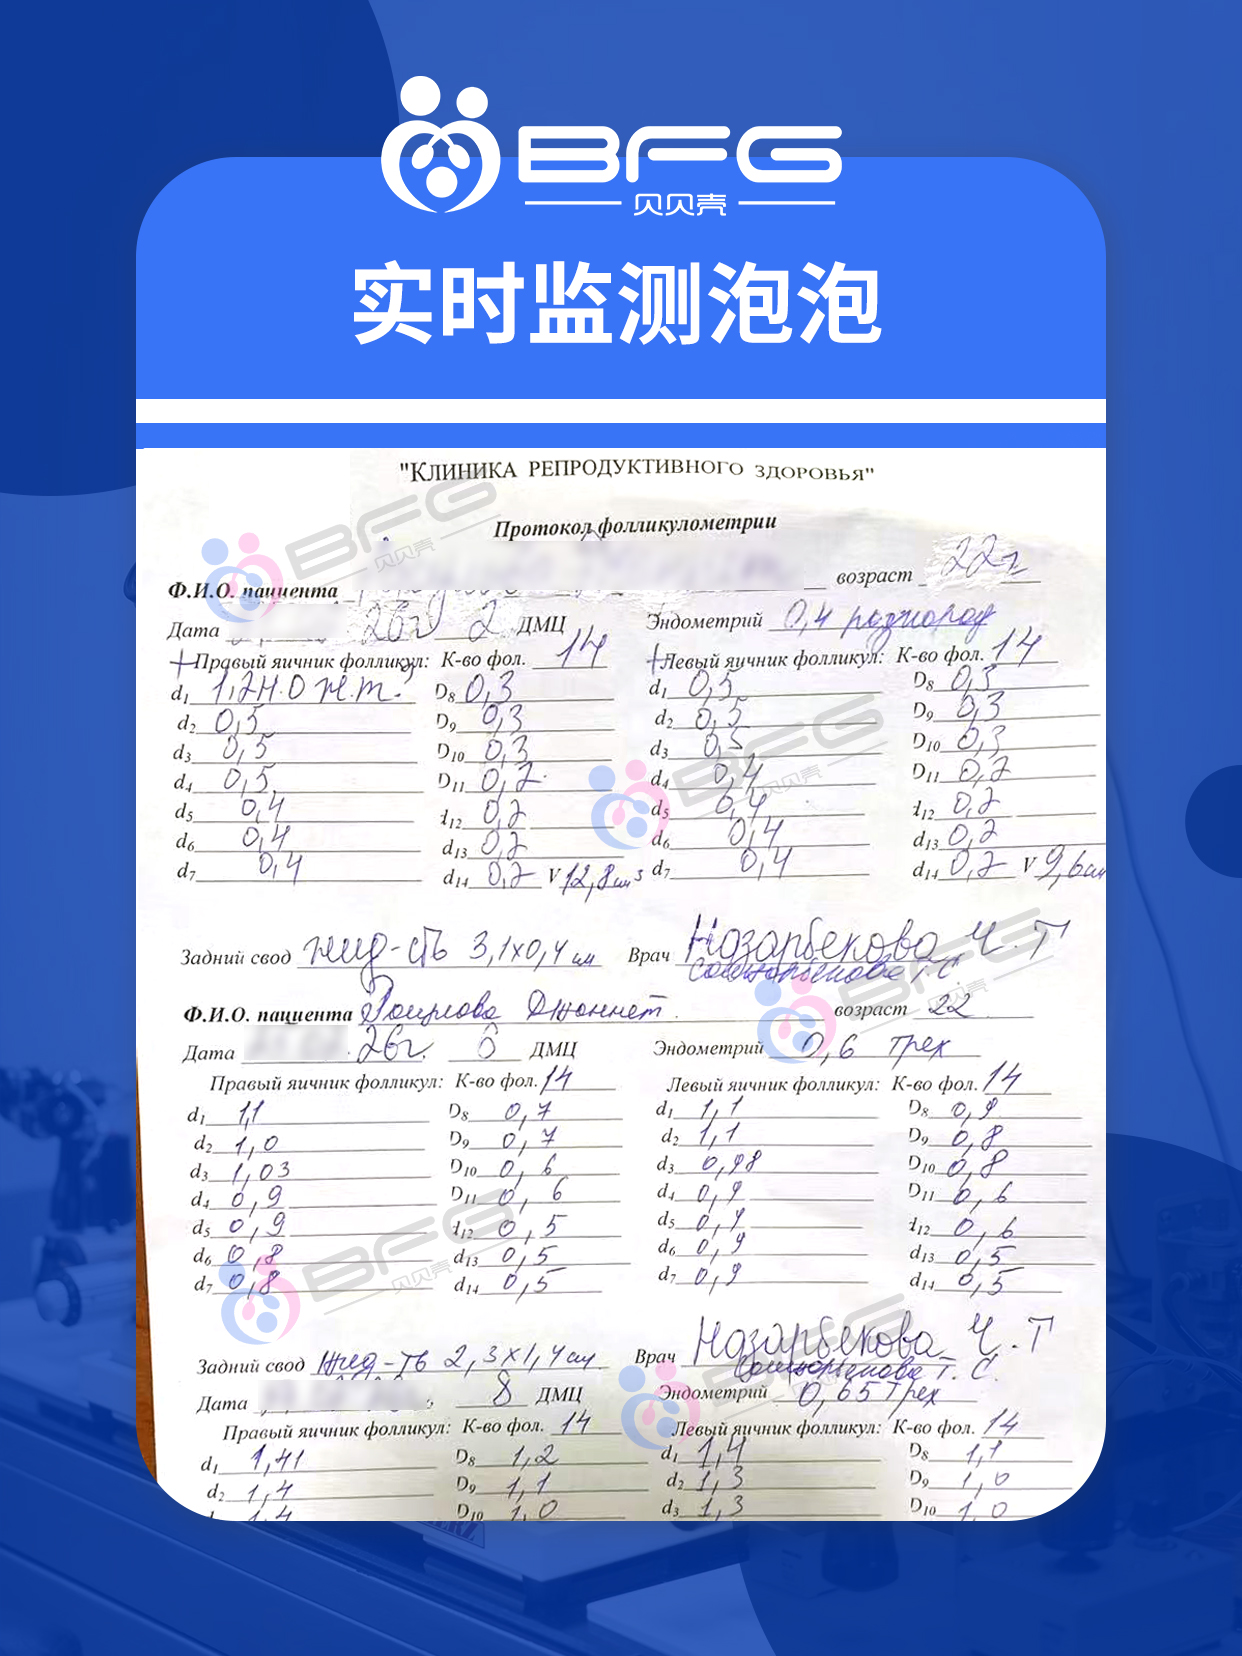 BFG
贝贝壳
实时监测泡泡
"Клиника репродуктивного здоровья"
Протокол фолликулометрии
Ф.И.О. пациента возраст 22г
Дата 26г 2 ДМЦ Эндометрий 0,4
+Правый яичник фолликул: К-во фол. 14 +Левый яичник фолликул: К-во фол. 14
d1 1,2 D8 0,3 d1 0,5 D8 0,3
d2 0,5 D9 0,3 d2 0,5 D9 0,3
d3 0,5 D10 0,3 d3 0,5 D10 0,3
d4 0,5 D11 0,2 d4 0,4 D11 0,2
d5 0,4 d12 0,2 d5 0,4 d12 0,2
d6 0,4 d13 0,2 d6 0,4 d13 0,2
d7 0,4 d14 0,2 V 12,8 см3 d7 0,4 d14 0,2 V 9,6см
Задний свод жид-сть 3,1х0,4 см Врач Назарбекова Ч.Т
Ф.И.О. пациента возраст 22
Дата 26г. 6 ДМЦ Эндометрий 0,6 трех
Правый яичник фолликул: К-во фол. 14 Левый яичник фолликул: К-во фол. 14
d1 1,1 D8 0,7 d1 1,1 D8 0,9
d2 1,0 D9 0,7 d2 1,1 D9 0,8
d3 1,03 D10 0,6 d3 0,98 D10 0,8
d4 0,9 D11 0,6 d4 0,9 D11 0,6
d5 0,9 d12 0,5 d5 0,9 d12 0,6
d6 0,8 d13 0,5 d6 0,9 d13 0,5
d7 0,8 d14 0,5 d7 0,9 d14 0,5
Задний свод жид-ть 2,3х1,4см Врач Назарбекова Ч.Т
Дата 8 ДМЦ Эндометрий 0,65 трех
Правый яичник фолликул: К-во фол. 14 Левый яичник фолликул: К-во фол. 14
d1 1,41 D8 1,2 d1 1,4 D8 1,1
d2 1,4 D9 1,1 d2 1,3 D9 1,0
1,4 D10 1,0 d3 1,3 D10 1,0